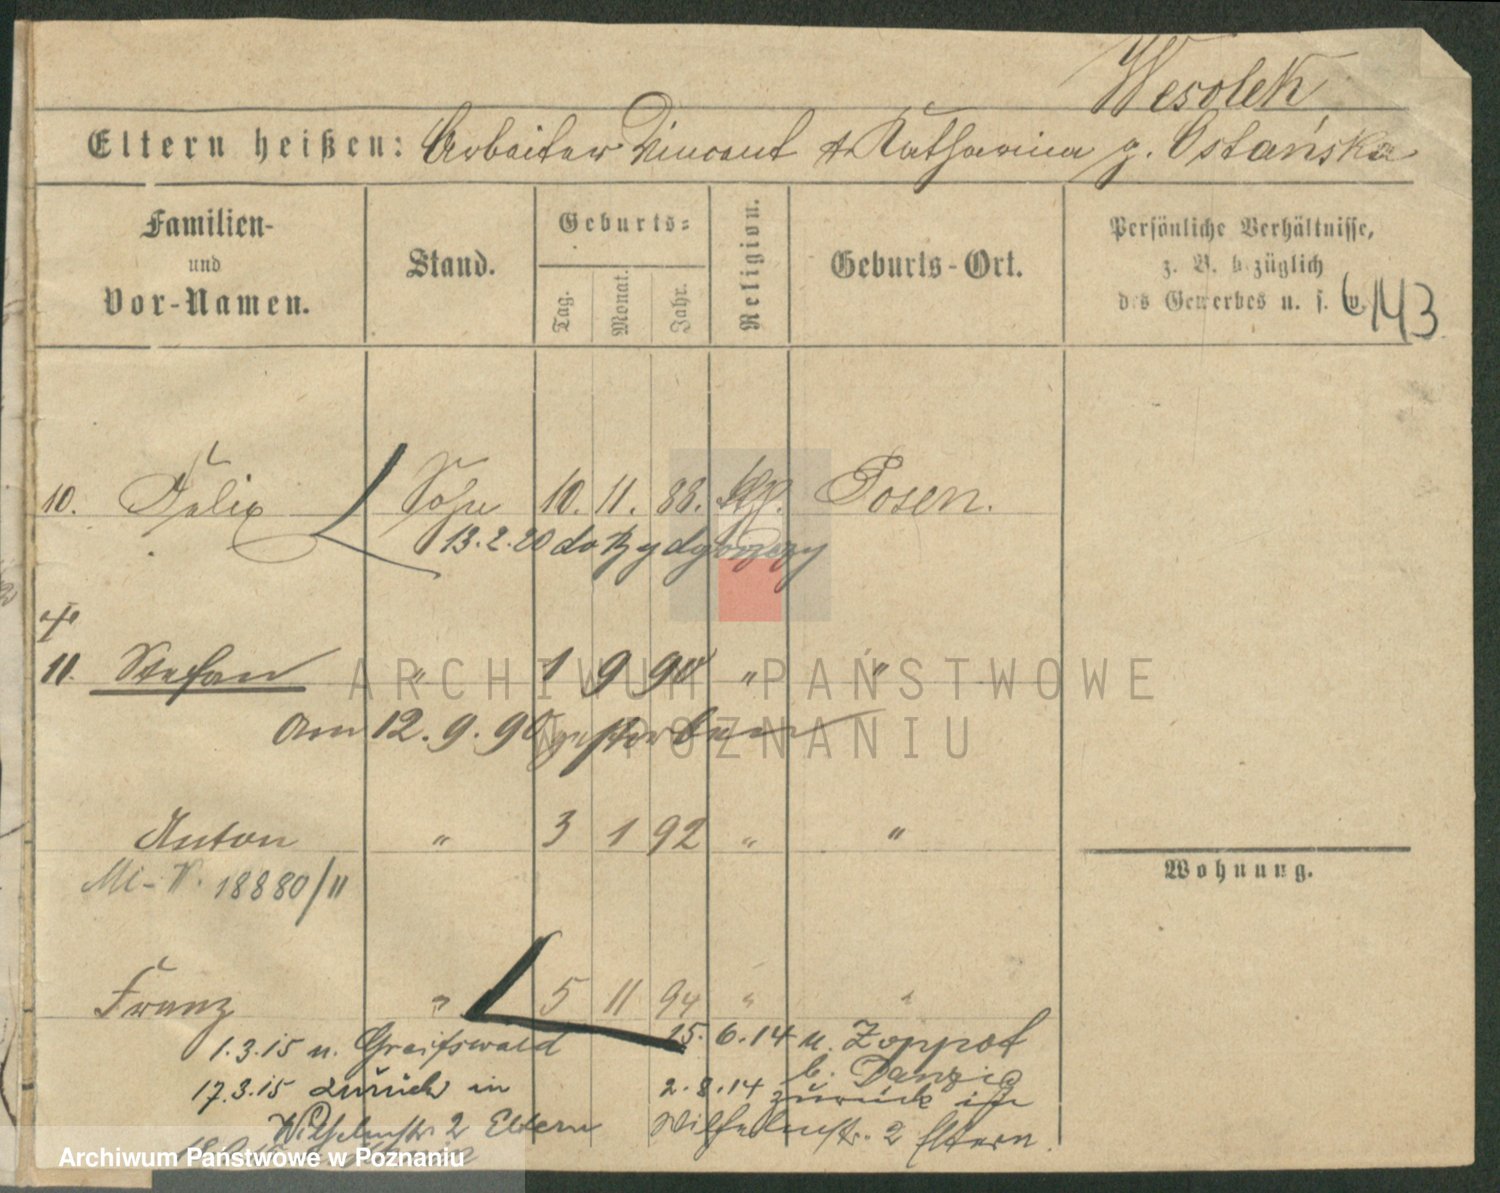 Wesolek
Eltern heißen: Arbeiter Vincent & Katharina g. Ostańska
Familien- und Vor-Namen.
Stand.
Geburts-
Tag.
Monat.
Jahr.
Religion.
Geburts-Ort.
Persönliche Verhältnisse,
z. B. bezüglich
des Gewerbes u. s. w.
6143
10. Felix Sohn 10. 11. 88. kth. Posen.
13.2.20 do Bydgoszczy
†
11. Stefan " 1 9 90 " "
am 12. 9. 90 gestorben
Anton " 3 1 92 " "
18880/11
Franz " 5 11 94 " "
1.3.15 n. Greifswald
17.3.15 zurück in
Wilhelmstr. 2 Eltern
15. 6. 14 n. Zoppot
b. Danzig
2. 8. 14 zurück in
Wilhelmstr. 2 Eltern.
Wohnung.
ARCHIWUM PAŃSTWOWE
W POZNANIU
Archiwum Państwowe w Poznaniu